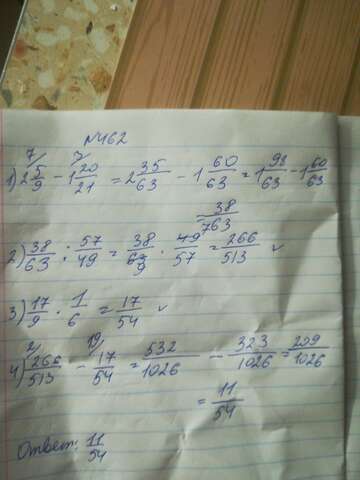 №462
1) 2 5/9 - 1 20/21 = 2 35/63 - 1 60/63 = 1 98/63 - 1 60/63
= 38/63
2) 38/63 : 57/49 = 38/63 · 49/57 = 266/513 ✓
3) 17/9 · 1/6 = 17/54 ✓
4) 266/513 - 17/54 = 532/1026 - 323/1026 = 209/1026
= 11/54
Ответ: 11/54